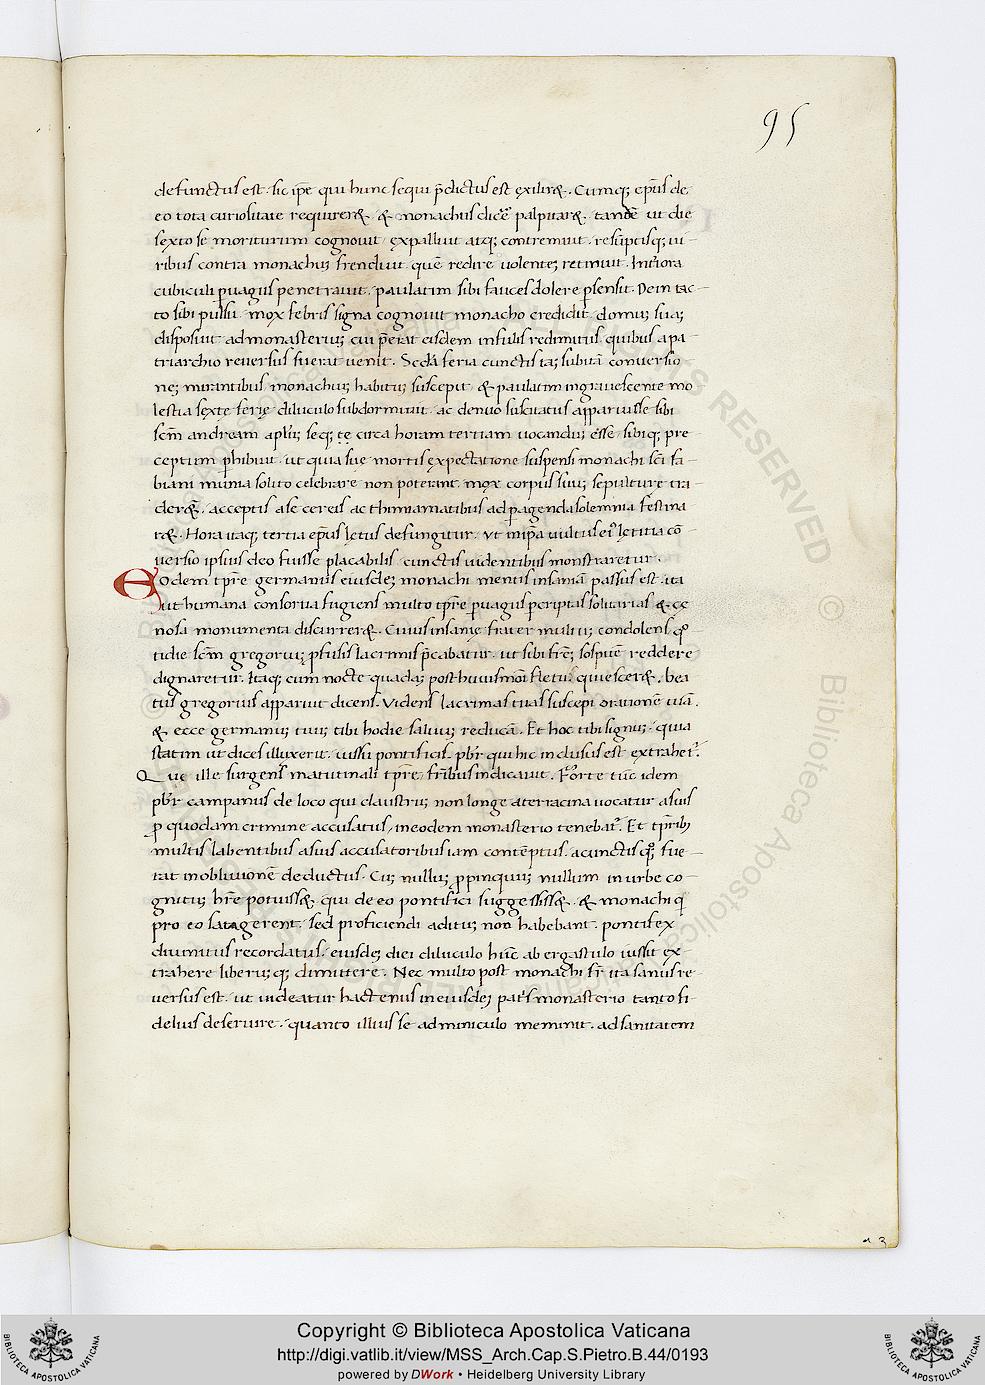 95
defunctus est. sic ip̄e qui hunc sequi p̄dictus est exilir&. Cumq; ep̄us de
eo tota curiositate requirer& & monachus dicē palpitar&. tandē ut die
sexto se moriturum cognouit expalluit atq; contremuit. resūptisq; ui-
ribus contra monachū frenduit quē redire uolentē retinuit. Inf̄iora
cubiculi puagus penetrauit. paulatim sibi fauces dolere p̄sensit. Dein tac-
to sibi pulsu. mox febris signa cognouit monacho credidit. domū suā
disposuit ad monasteriū cui p̄erat eisdem infulis redimitus quibus a pa-
triarchio reuersus fuerat uenit. Secd̄a feria cunctis tā subitā conuersio-
nē mirantibus monachicū habitū suscepit. & paulatim ingrauescente mo-
lestia sexte ferię diluculo subdormiuit. ac denuo suscitatus apparuisse sibi
sc̄m andream ap̄lm seq; circa horam tertiam uocandū esse sibiq; pre-
ceptum p̄hibuit. ut quia suę mortis expectatione suspensi monachi sc̄i fa-
biani munia solito celebrare non poterant. mox corpus suū sepulture tra-
der&. acceptis a se cereis ac thimiamatibus ad pagenda solemnia festina-
r&. Hora itaq; tertia ep̄us lętus defungitur. Ut in ip̄a uultus ei' lętitia cō-
uersio ipsius deo fuisse placabilis cunctis uidentibus monstraretur.
Eodem tp̄re germanus eiusdē monachi mentis insaniā passus est. ita
ut humana consortia fugiens multo tp̄re puagus p scriptas solitarias & cę-
nosa monumenta discurrer&. Cuius insanię frater multū condolens q°-
tidie sc̄m gregoriū pfusis lacrimis p̄cabatur. ut sibi frēm sospitē reddere
dignaretur. Itaq; cum nocte quadā post huiusmōi fletū quiescer&. bea-
tus gregorius apparuit dicens. Videns lacrimas tuas suscepi orationē tuā.
& ecce germanus tuus tibi hodie saluus reducā. Et hoc tibi signū. quia
statim ut dies illuxerit. iussu pontificis. pbr̄ qui hic inclusus est extrahet~.
Que ille surgens matutinali tp̄re. fr̄ibus indicauit. Forte tūc idem
pbr̄ campanus de loco qui claustrū non longe a terracina uocatur a suis
p quodam crimine accusatus, in eodem monasterio tenebat~. Et tp̄rib;
multis labentibus a suis accusatoribus iam contēptus. a cunctis q°q; fue-
rat in obliuionē deductus. Cū nullū ppinquū nullum in urbe co-
gnitū hr̄e potuiss&. qui de eo pontifici suggessiss&. & monachi q
pro eo satagerent. sed proficiendi aditū non habebant. pontifex
diuinitus recordatus. eiusdē diei diluculo hūc ab ergastulo iussit ex-
trahere liberūq; dimittere. Nec multo post monachi fr̄ ita sanus re-
uersus est. ut uideatur hactenus in eiusdē pat's monasterio tanto fi-
delius deseruire. quanto illius se adminiculo meminit. ad sanitatem
Copyright © Biblioteca Apostolica Vaticana
http://digi.vatlib.it/view/MSS_Arch.Cap.S.Pietro.B.44/0193
powered by DWork • Heidelberg University Library